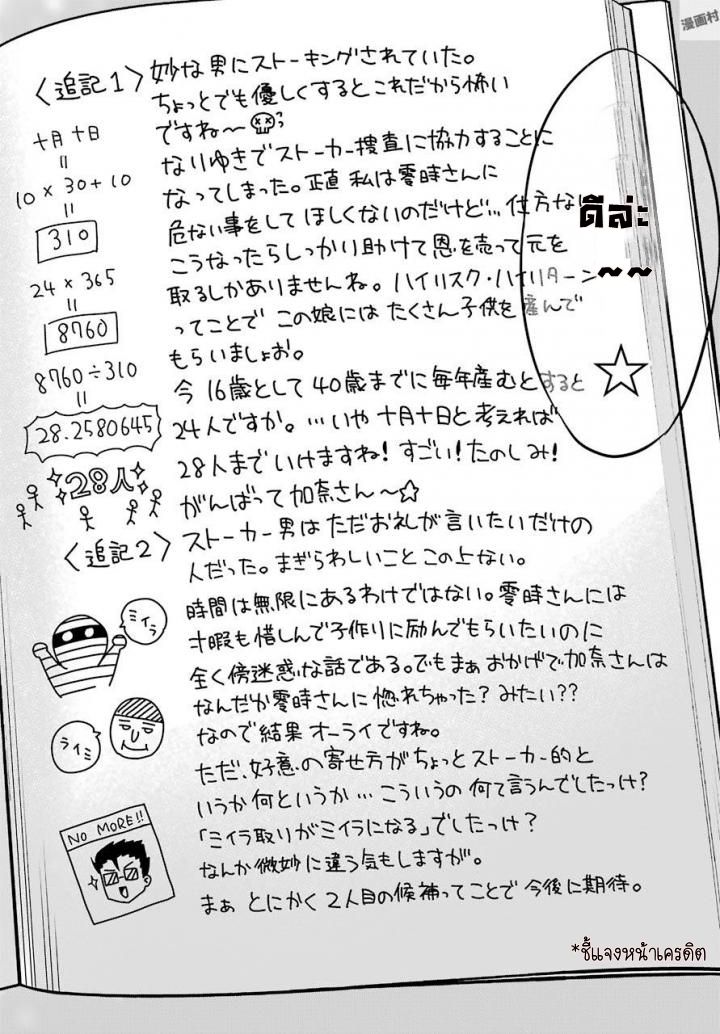 漫画村
〈追記1〉
妙な男にストーキングされていた。
ちょっとでも優しくするとこれだから怖い
ですね〜
なりゆきでストーカー捜査に協力することに
なってしまった。正直 私は零時さんに
危ない事をしてほしくないのだけど…仕方な
こうなったらしっかり助けて恩を売って元を
取るしかありませんね。ハイリスク・ハイリターン
ってことで この娘には たくさん子供を産んで
もらいましょお。
今 16歳として 40歳までに毎年産むとすると
24人ですか。…いや 十月十日と考えれば
28人までいけますね! すごい! たのしみ!
がんばって 加奈さん〜☆
十月十日
=
10×30+10
=
310
24×365
=
8760
8760÷310
=
28.2580645
28人
〈追記2〉
ストーカー男は ただお礼が言いたいだけの
人だった。まぎらわしいこと この上ない。
時間は無限にあるわけではない。零時さんには
寸暇も惜しんで子作りに励んでもらいたいのに
全く傍迷惑な話である。でもまぁ おかげで加奈さんは
なんだか零時さんに惚れちゃった? みたい??
なので結果オーライですね。
ただ、好意の寄せ方がちょっとストーカー的と
いうか何というか… こういうの 何て言うんでしたっけ?
「ミイラ取りがミイラになる」でしたっけ?
なんか微妙に違う気もしますが。
まぁ とにかく 2人目の候補ってことで 今後に期待。
ミイラ
ライミ
NO MORE!!
ดีล่ะ
~~
☆
*ชี้แจงหน้าเครดิต